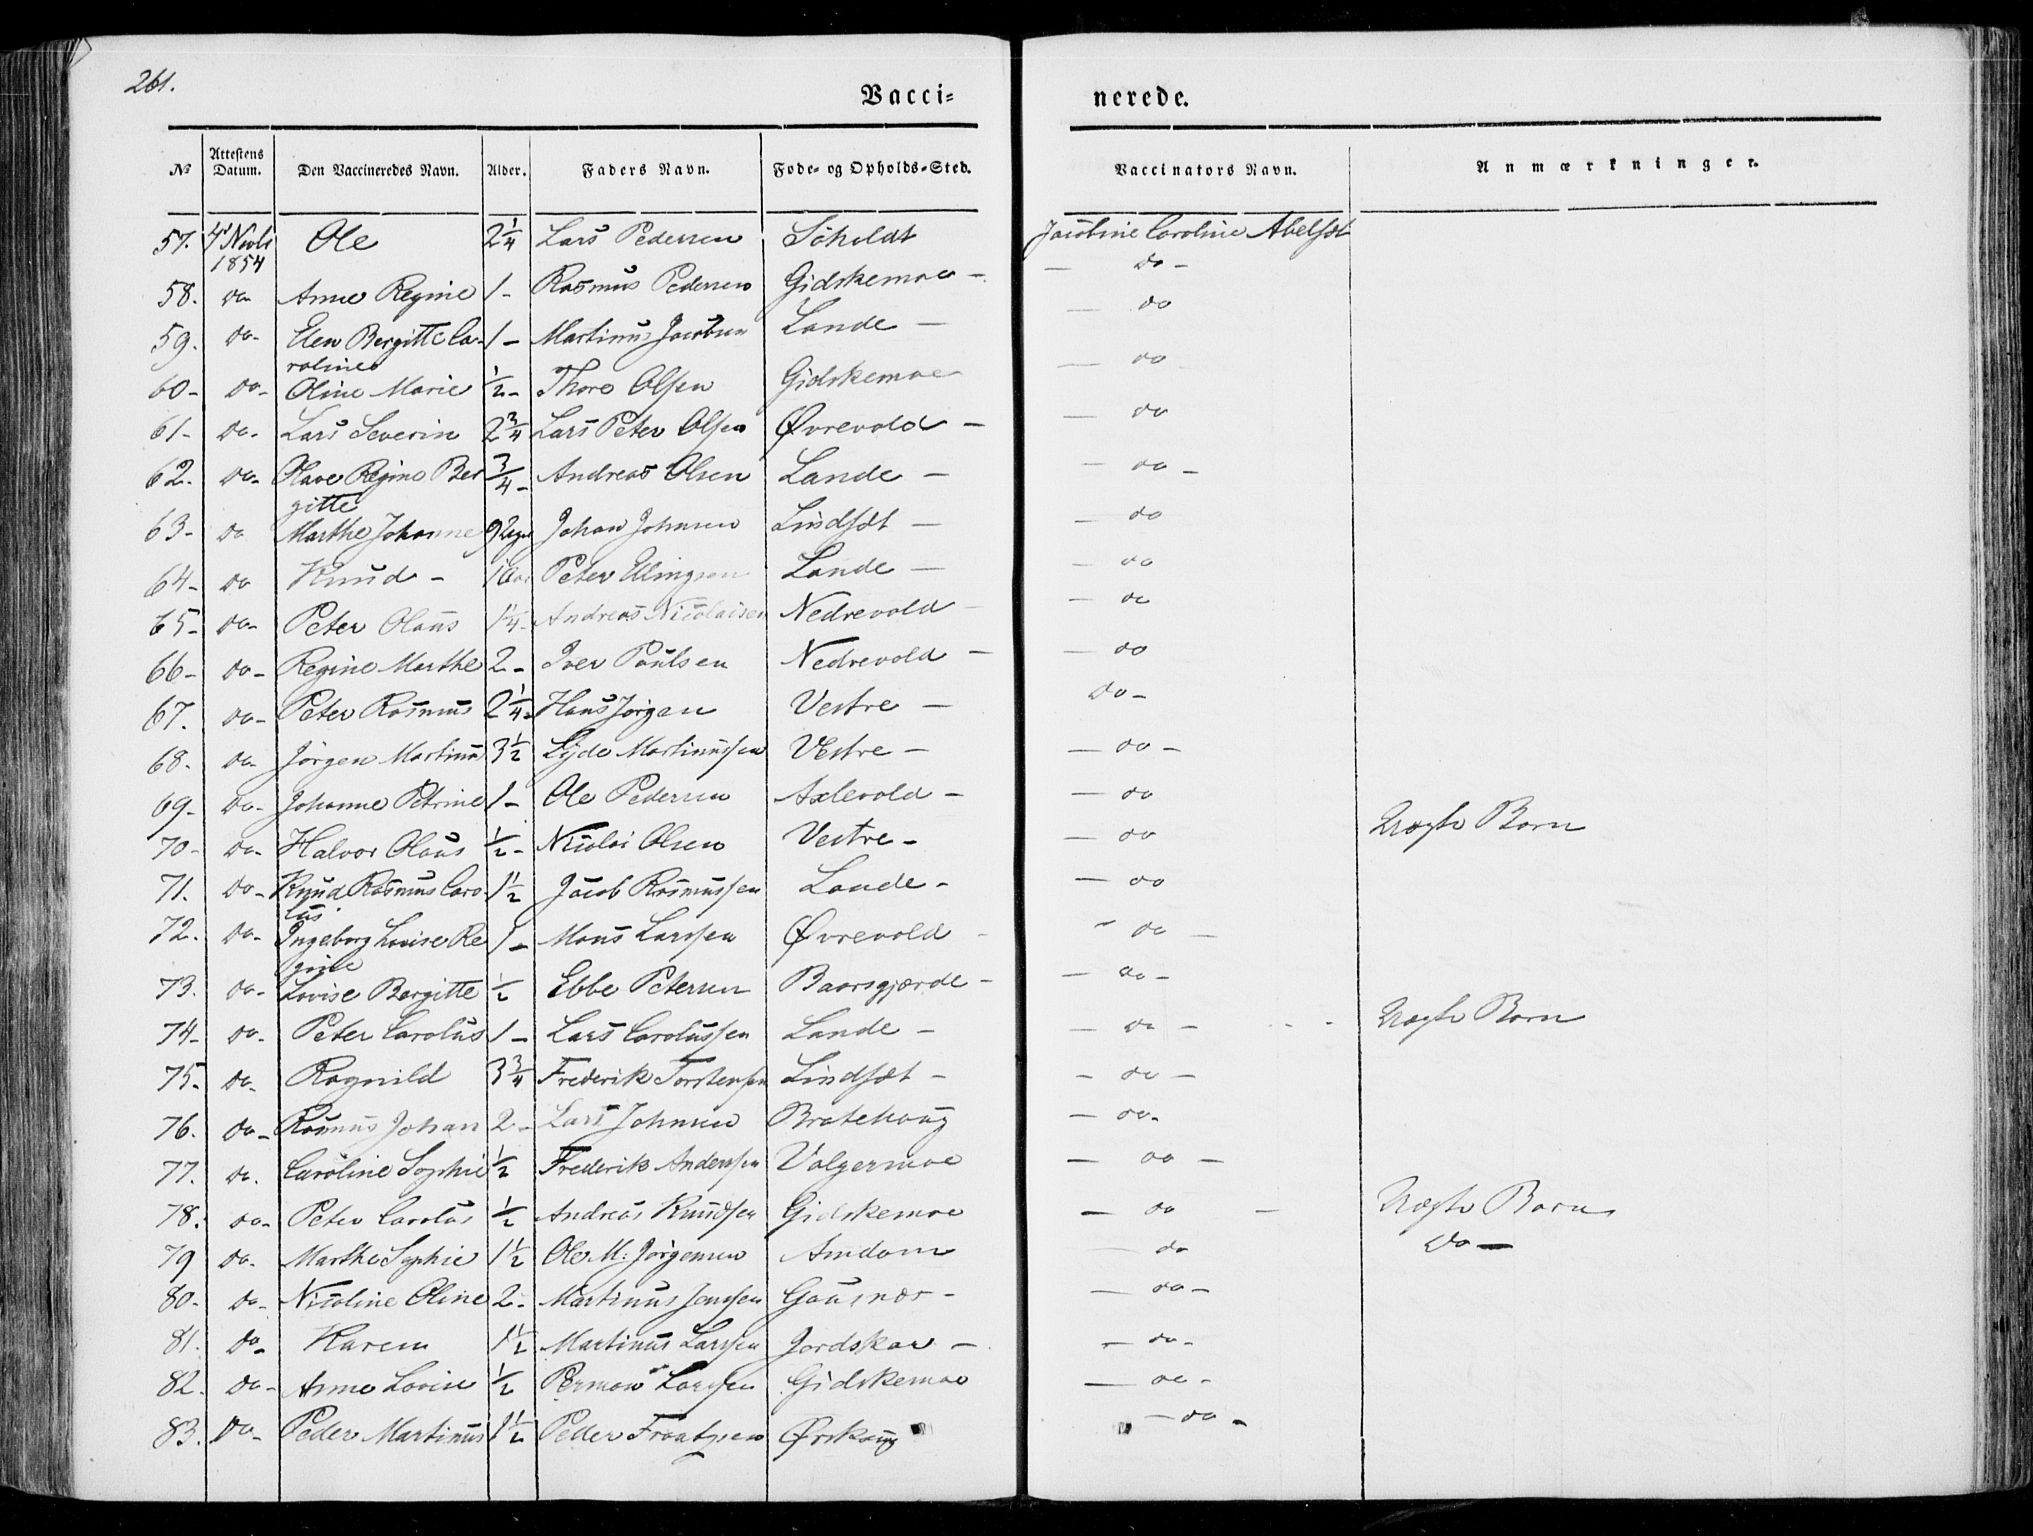 261.
Vacci=
nerede.
№ Attestens Datum. Den Vaccineredes Navn. Alder. Faders Navn. Føde- og Opholds-Sted. Vaccinators Navn. Anmærkninger.
57. 4 Novbr 1854 Ole 2 1/4 Lars Pedersen Soholdt Jacobine Caroline Abelsæt
58. do Anne Regine 1 - Rasmus Pedersen Gidskemoe - - do -
59. do- Elen Bergitte Ca- 1 - Martinus Jacobsen Lande - - do
roline
60- do- Oline Marie 1/2 - Thore Olsen Gidskemoe - do
61- do- Lars Severin 2 3/4 Lars Peter Olsen Øvrevold - - do
62. do- Olave Regine Ber 3/4 - Andreas Olsen Lande - - do -
gitte
63- do Marthe Johanne Johan Johnsen Lindsæt - - do
64- do Knud - 1 Aar Peter Ellingsen Lande - - do
65- do- Peter Olaus 1 1/4 - Andreas Nicolaisen Nedrevold - - do
66- do- Regine Marthe 2 - Iver Paulsen Nedrevold - - do
67. do- Peter Rasmus 2 1/4 - Hans Jørgen Vestre - do -
68- do- Jørgen Martinus 3 1/2 Martinussen Vestre - - do -
69- do- Johanne Petrine 1 - Ole Pedersen Axlevold - - do
70- do- Halvor Olaus 1/2 - Nicolai Olsen Vestre - - do Uægte Barn
71. do- Knud Rasmus Caro- 1 1/2 Jacob Rasmussen Lande - - do
lus
72. do- Ingeborg Lovise Re 1 - Mons Larssen Øvrevold - - do -
gine
73. do- Lovise Bergitte 1/2 Ebbe Petersen Baarsgjærde - - do -
74- do- Peter Carolus 1 - Lars Carolussen Lande - - do - Uægte Barn
75- do- Ragnild 3 3/4 Frederik Torstensen Lindsæt - - do -
76. do- Rasmus Johan 2 - Lars Johnsen Bratehaug - do-
77. do. Caroline Sophie 1/2 Frederik Anderssen Volgermoe - do -
78. do- Peter Carolus 1/2 Andreas Knudsen Gidskemoe - do - Uægte Barn
79 do- Marthe Sophie 1 1/2 Ole M: Jørgensen Amdam - do do -
80- do- Nicoline Oline 2- Martinus Jenssen Gausnæs - - do -
81. do- Karen 1 1/2 Martinus Larssen Jordskar - - do -
82. do- Anne Lovise 1/2 Larssen Gidskemoe - do -
83. do- Peder Martinus 1 1/2 Peder Frantzen Ørskoug - do -